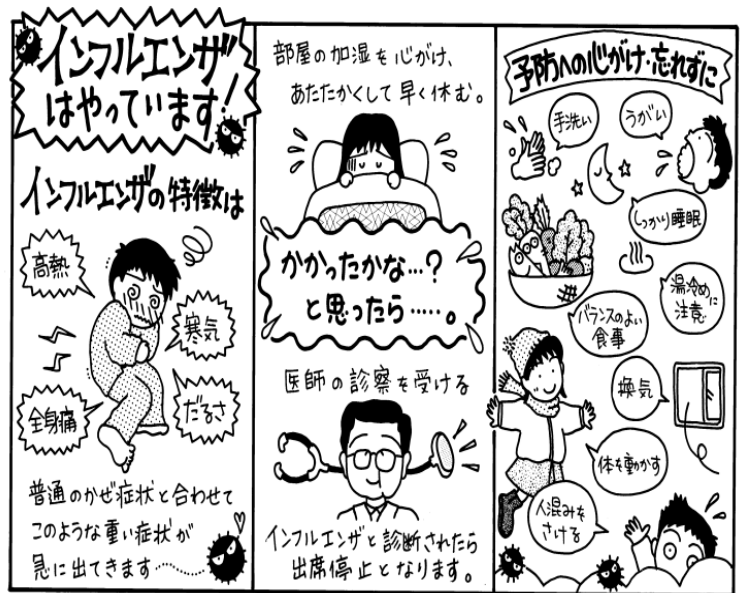 インフルエンザ
はやっています!
インフルエンザの特徴は
高熱
寒気
全身痛
だるさ
普通のかぜ症状と合わせて
このような重い症状が
急に出てきます…………
部屋の加湿を心がけ、
あたたかくして早く休む。
かかったかな…?
と思ったら……。
医師の診察を受ける
インフルエンザと診断されたら
出席停止となります。
予防への心がけ・忘れずに
手洗い
うがい
しっかり睡眠
湯冷めに
注意
バランスのよい
食事
換気
体を動かす
人混みを
さける